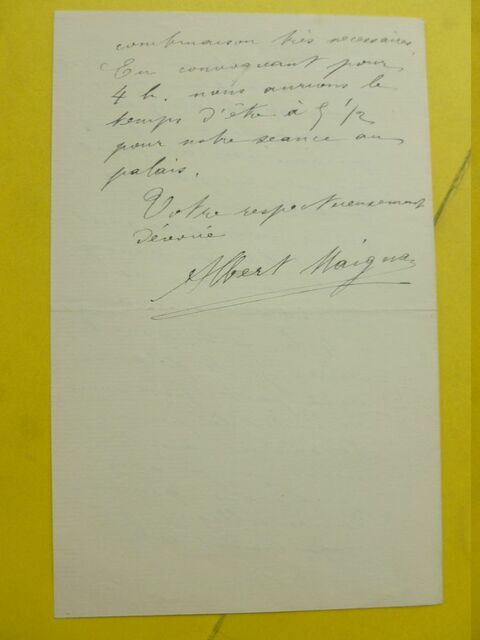 combinaison très nécessaires.
En convoquant pour
4 h. nous aurions le
temps d'être à 5 1/2
pour notre séance au
palais.
Votre respectueusement
dévoué
Albert Maignan